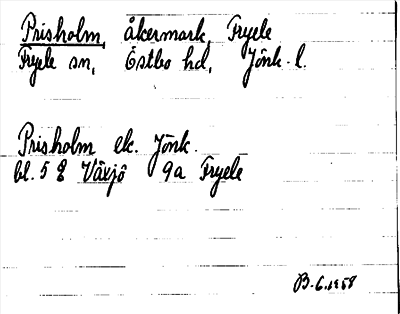 Prisholm, åkermark, Fryele
Fryele sn, Östbo hd, Jönk. l.
Prisholm ek. Jönk.
bl. 5 E Växjö 9a Fryele
B.G. 1958